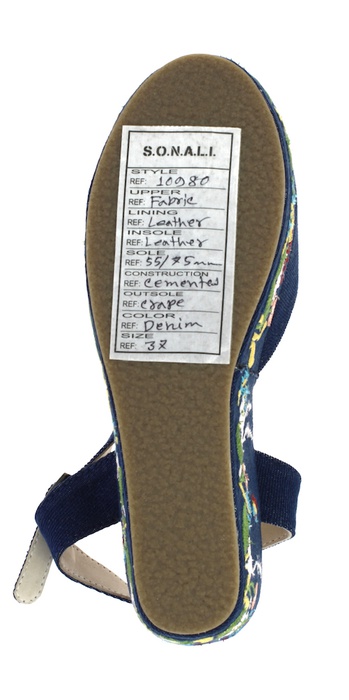 S.O.N.A.L.I.
STYLE
REF: 10980
UPPER
REF: Fabric
LINING
REF: Leather
INSOLE
REF: Leather
SOLE
REF: 55/75mm
CONSTRUCTION
REF: cemented
OUTSOLE
REF: crape
COLOR
REF: Denim
SIZE
REF: 37